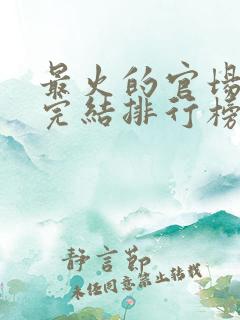 最火的官场
完结排行榜
静言节
未经同意禁止转载